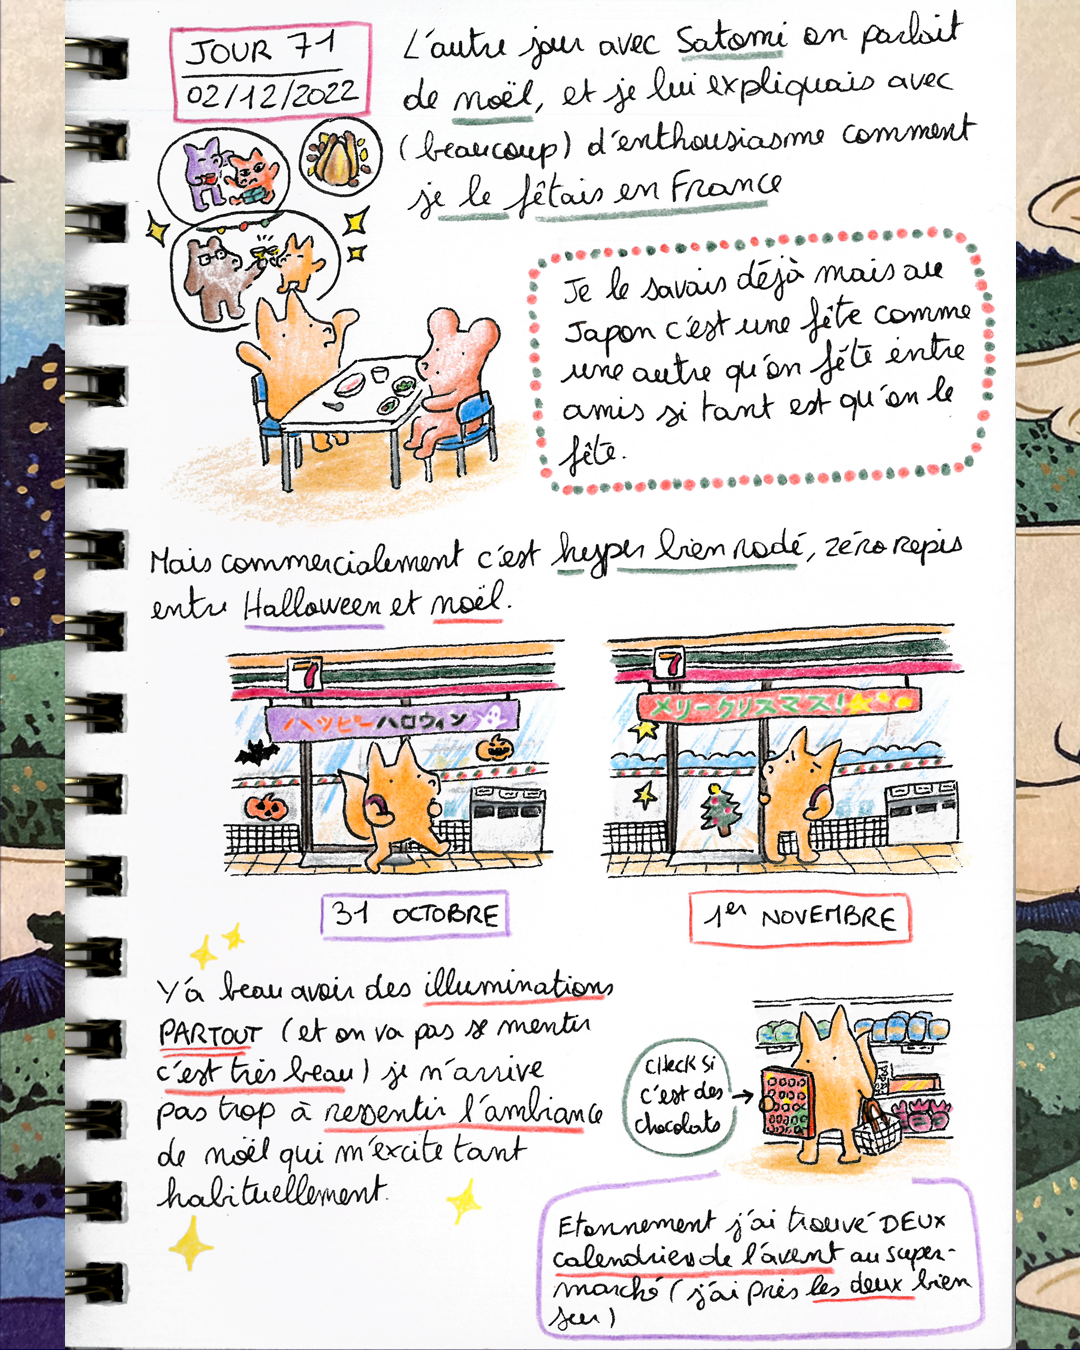 JOUR 71
02/12/2022
L'autre jour avec Satomi on parlait
de noël, et je lui expliquais avec
(beaucoup) d'enthousiasme comment
je le fêtais en France
Je le savais déjà mais au
Japon c'est une fête comme
une autre qu'on fête entre
amis si tant est qu'on le
fête.
Mais commercialement c'est hyper bien rodé, zéro repis
entre Halloween et noël.
7
ハッピーハロウィン
7
メリークリスマス!
31 OCTOBRE
1er NOVEMBRE
Y'a beau avoir des illuminations
PARTOUT (et on va pas se mentir
c'est très beau) je n'arrive
pas trop à ressentir l'ambiance
de noël qui m'excite tant
habituellement.
CHeck si
c'est des
chocolats
Etonnement j'ai trouvé DEUX
calendriers de l'avent au super-
marché (j'ai près les deux bien
sur)